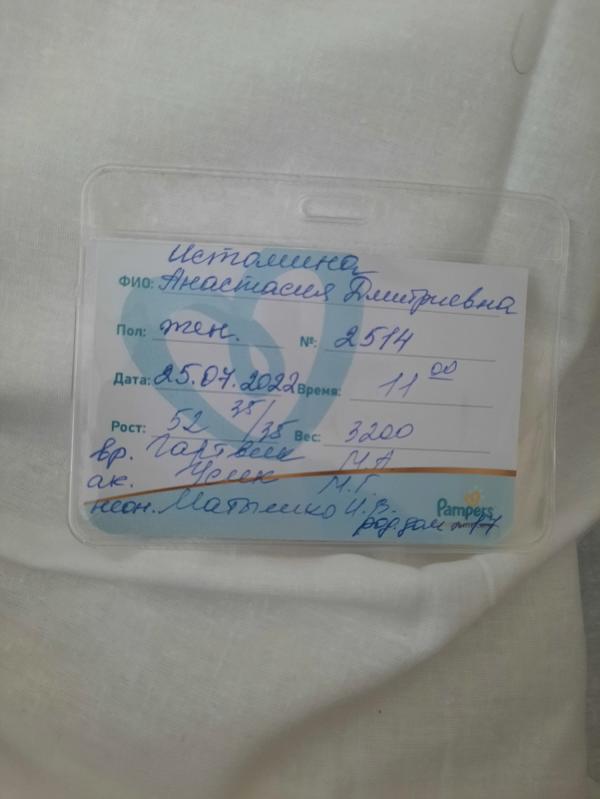 Истомина
ФИО: Анастасия Дмитриевна
Пол: жен. №: 2514
Дата: 25.07.2022 Время: 11 00
Рост: 52 35/35 Вес: 3200
вр. Гартвик М.А.
ак. Усик М.Г.
неон. Матышко И.В.
Pampers
род.дом 17